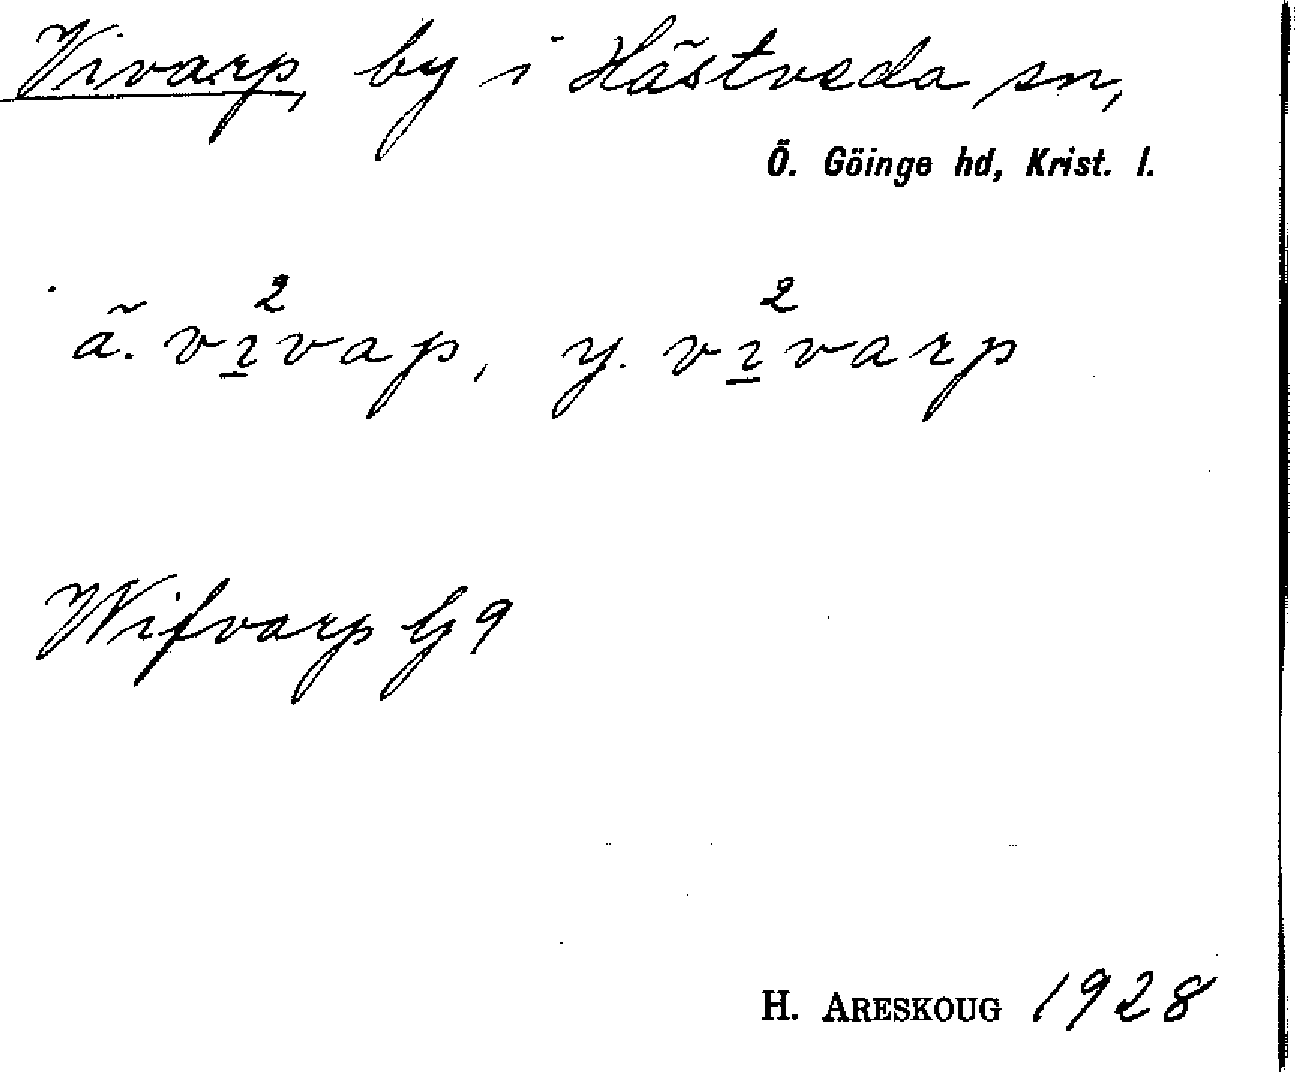 Vivarp, by i Hästveda sn,
Ö. Göinge hd, Krist. l.
ä. vɪ̲²vap, y. vɪ̲²varp
Wifvarp G 9
H. ARESKOUG 1928